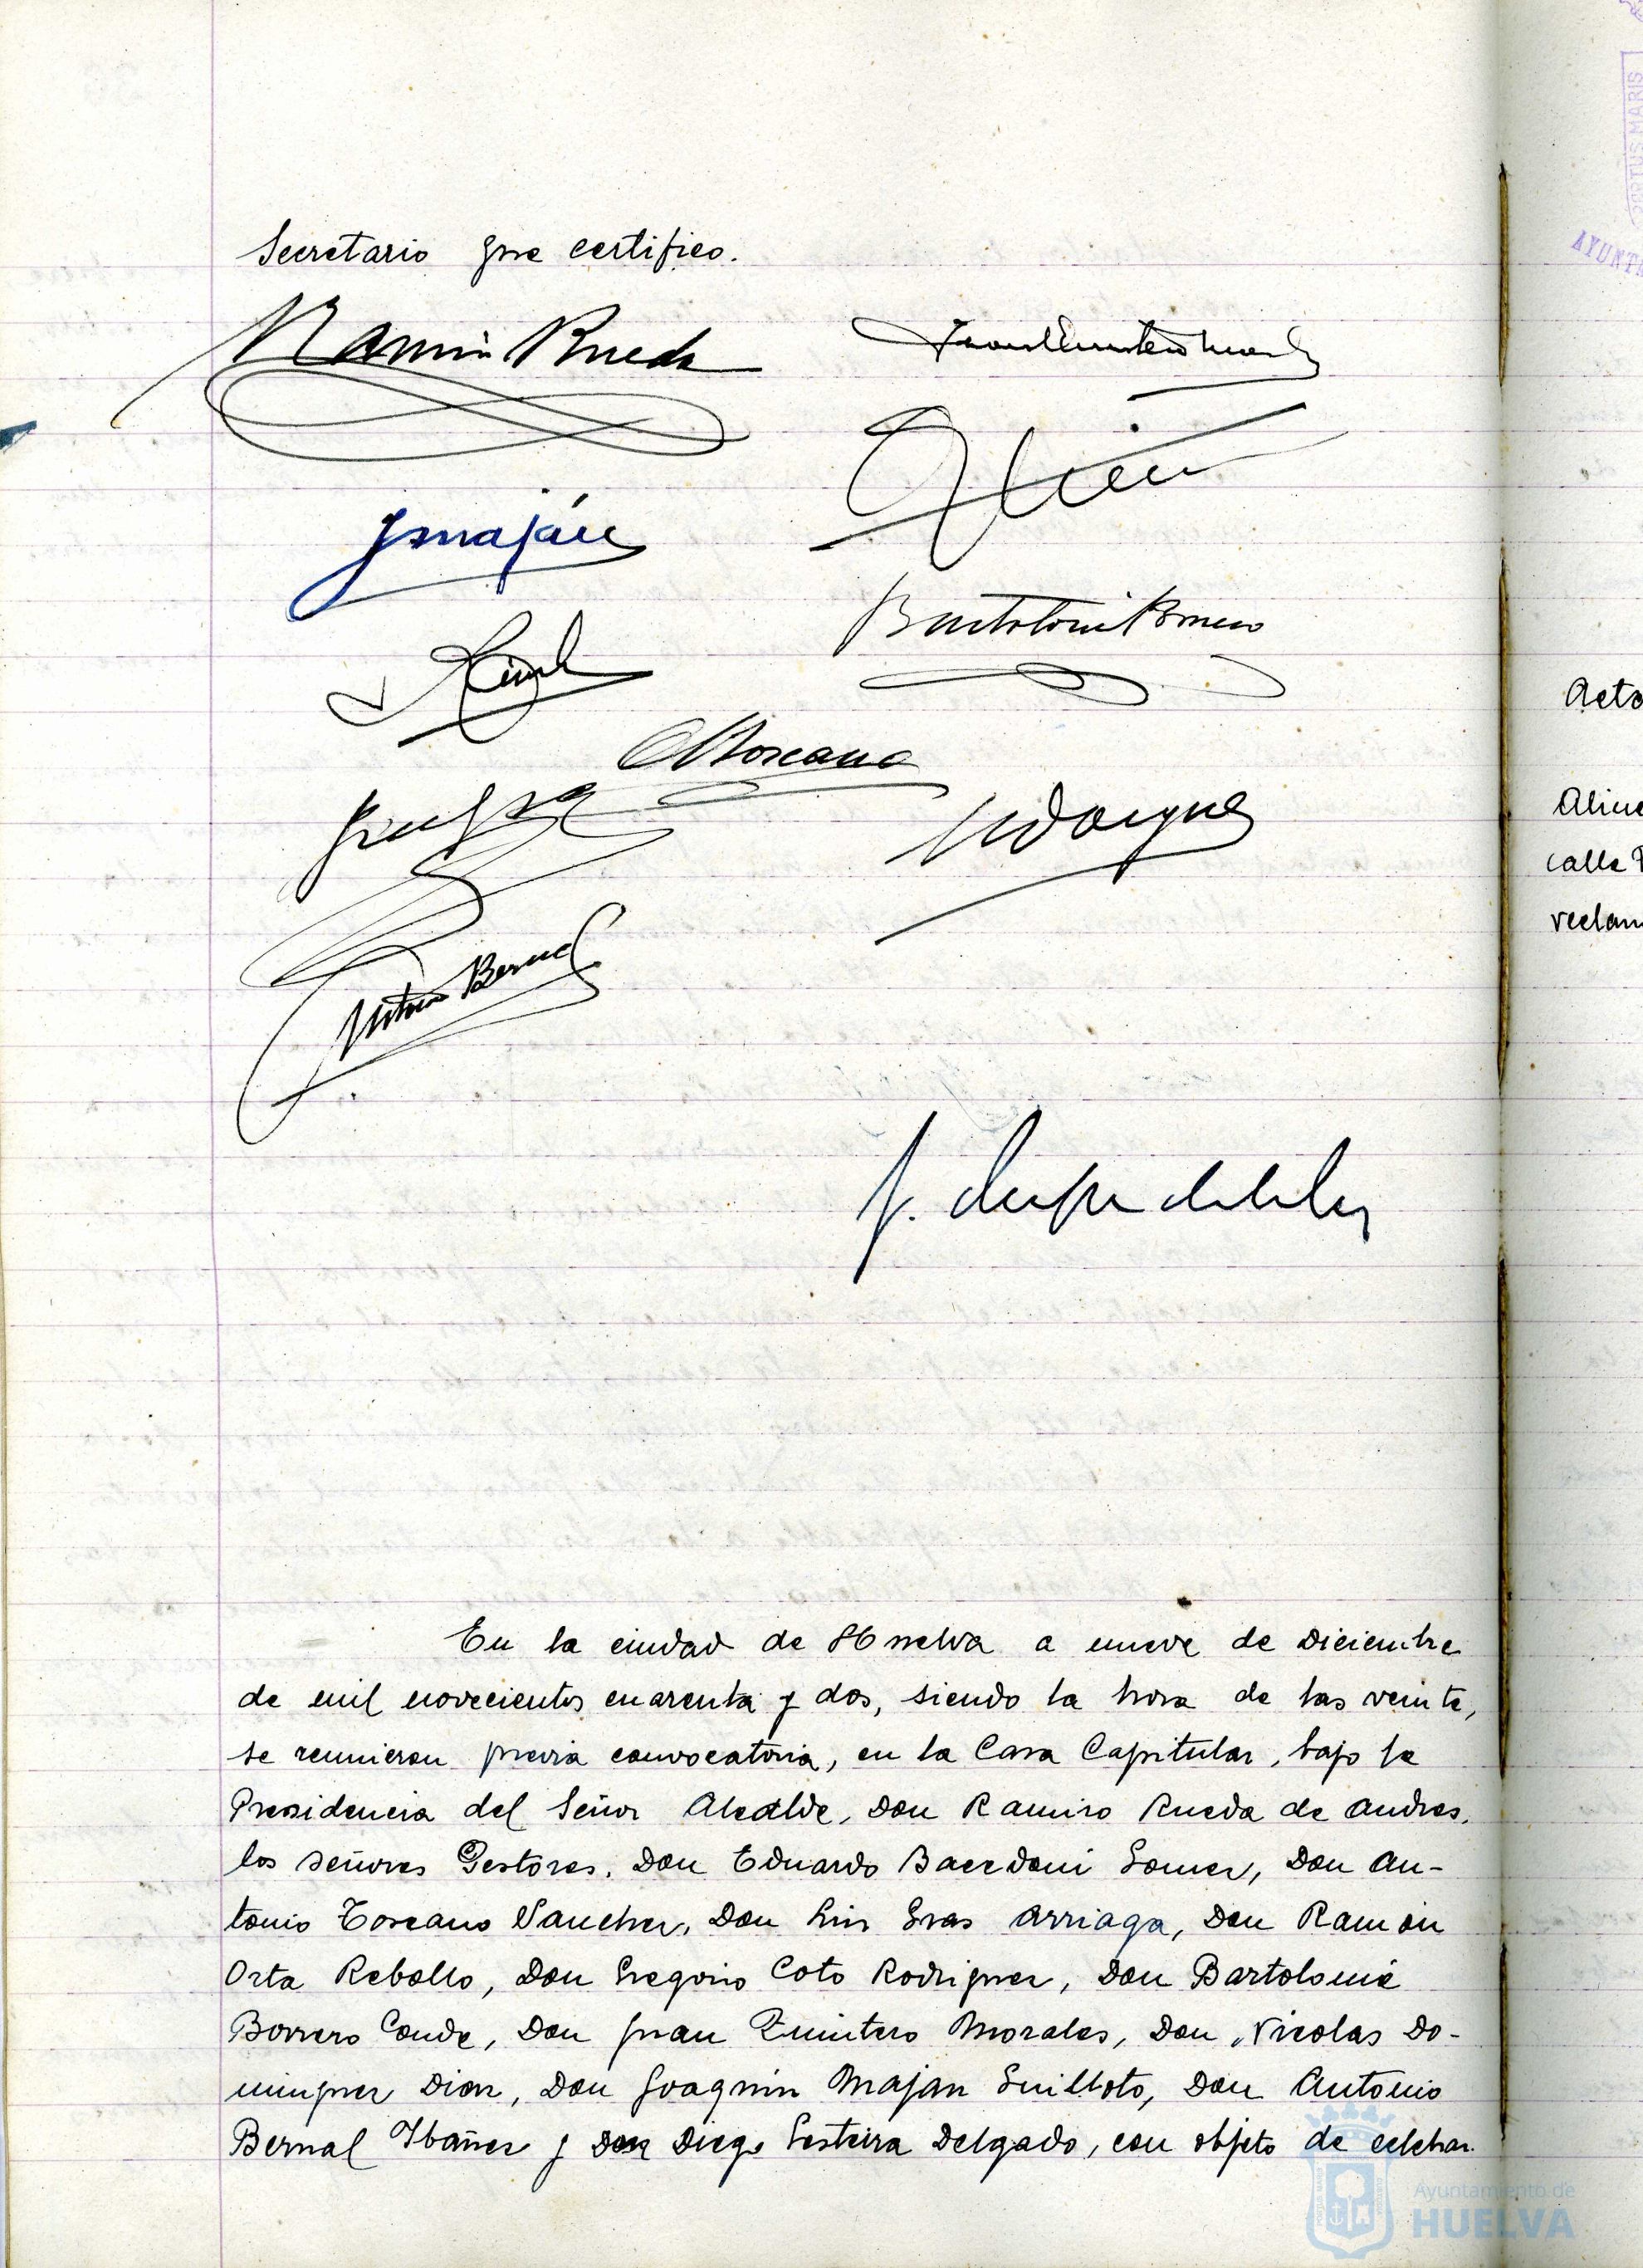 Secretario que certifico.
Ramiro Rueda
Juan Quintero Morales
J Maján
Bartolomé Borrero
A Toscano
N Domgue
Antonio Bernal
En la ciudad de Huelva a nueve de Diciembre
de mil novecientos cuarenta y dos, siendo la hora de las veinte,
se reunieron previa convocatoria, en la Casa Capitular, bajo la
Presidencia del Señor Alcalde, Don Ramiro Rueda de Andres,
los señores Gestores, Don Eduardo Bacedoni Gomez, Don An-
tonio Toscano Sanchez, Don Luis Gras Arriaga, Don Ramón
Orta Rebollo, Don Gregorio Coto Rodriguez, Don Bartolomé
Borrero Conde, Don Juan Quintero Morales, Don Nicolas Do-
minguez Diaz, Don Joaquin Majan Guilloto, Don Antonio
Bernal Ibañez y Don Diego Sesteira Delgado, con objeto de celebrar
PORTUS MARIS
AYUNTA
Acto
Aline
calle
reclam
Ayuntamiento de
HUELVA